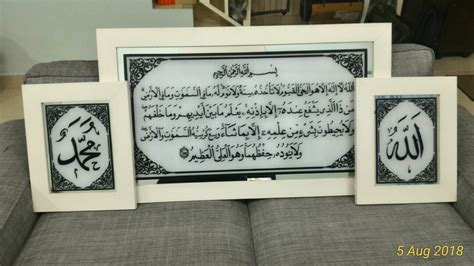 الله
بِسْمِ اللهِ الرَّحْمٰنِ الرَّحِيْمِ
اَللهُ لَا اِلٰهَ اِلَّا هُوَ الْحَيُّ الْقَيُّوْمُ لَا تَأْخُذُهُ سِنَةٌ وَلَا نَوْمٌ لَهُ مَا فِي السَّمٰوٰتِ وَمَا فِي الْاَرْضِ
مَنْ ذَا الَّذِيْ يَشْفَعُ عِنْدَهُ اِلَّا بِاِذْنِهِ يَعْلَمُ مَا بَيْنَ اَيْدِيْهِمْ وَمَا خَلْفَهُمْ
وَلَا يُحِيْطُوْنَ بِشَيْءٍ مِنْ عِلْمِهِ اِلَّا بِمَا شَاءَ وَسِعَ كُرْسِيُّهُ السَّمٰوٰتِ وَالْاَرْضَ
وَلَا يَئُوْدُهُ حِفْظُهُمَا وَهُوَ الْعَلِيُّ الْعَظِيْمُ
محمد
5 Aug 2018